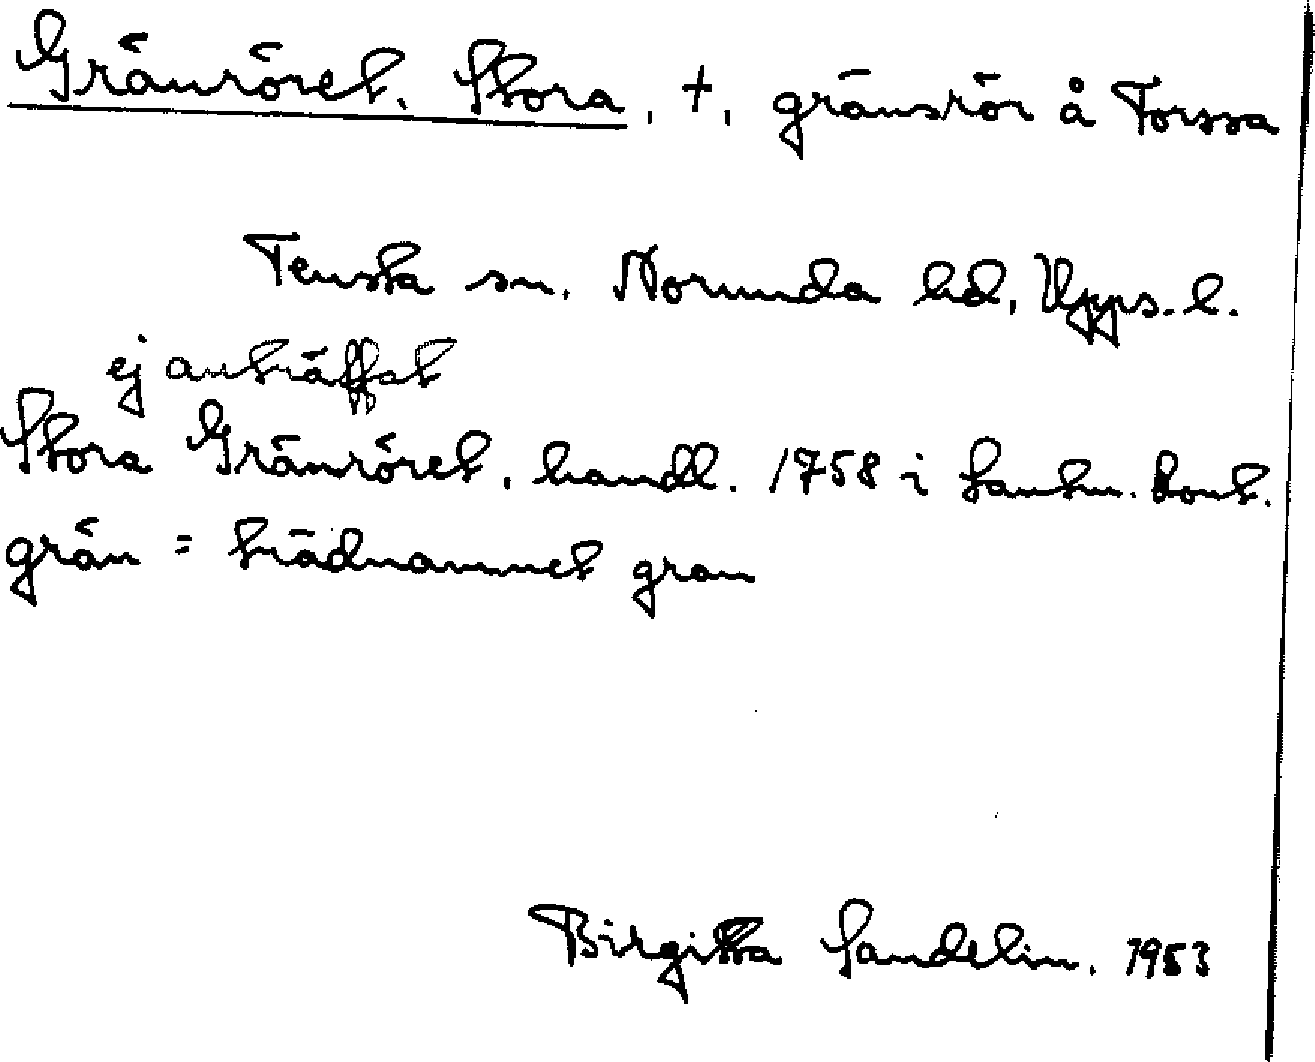 Gränröret, Stora, +, gränsrör å Forssa
Tensta sn, Norunda hd, Upps. l.
ej anträffat
Stora Gränröret, handl. 1758 i Lantm. kont.
grän = trädnamnet gran
Birgitta Sandelin, 1953